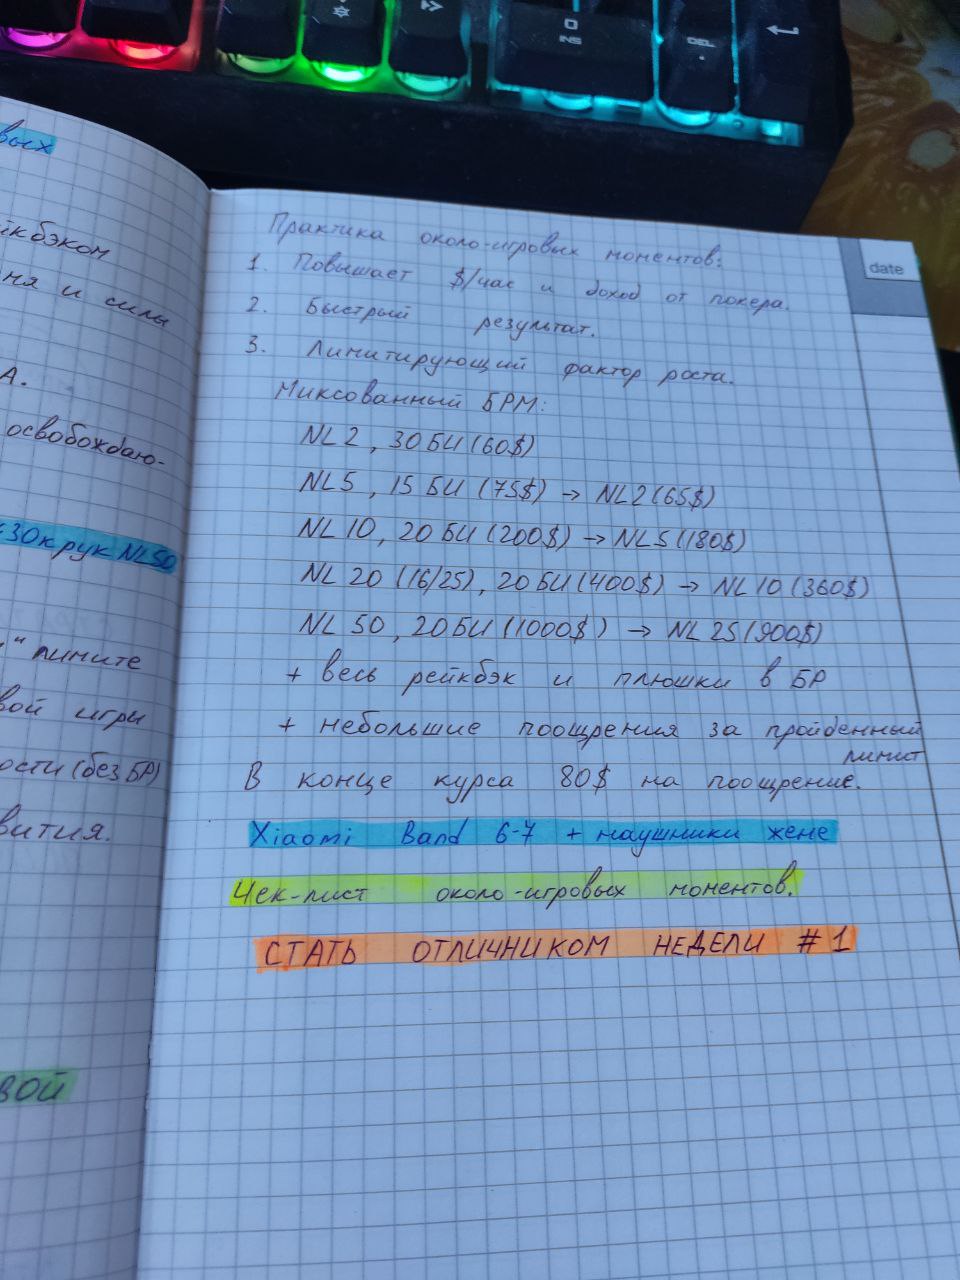 INS
DEL
вых
йкбэком
ня и силы
А.
освобождаю-
30к рук NL50
" лимите
вой игры
ости (без БР)
вития.
вой
date
Практика около-игровых моментов:
1. Повышает $/час и доход от покера.
2. Быстрый результат.
3. Лимитирующий фактор роста.
Миксованный БРМ:
NL2, 30 БИ (60$)
NL5, 15 БИ (75$) → NL2 (65$)
NL10, 20 БИ (200$) → NL5 (180$)
NL20 (16/25), 20 БИ (400$) → NL10 (360$)
NL50, 20 БИ (1000$) → NL25 (900$)
+ весь рейкбэк и плюшки в БР
+ небольшие поощрения за пройденный
лимит
В конце курса 80$ на поощрение.
Xiaomi Band 6-7 + наушники жене
Чек-лист около-игровых моментов.
СТАТЬ ОТЛИЧНИКОМ НЕДЕЛИ #1